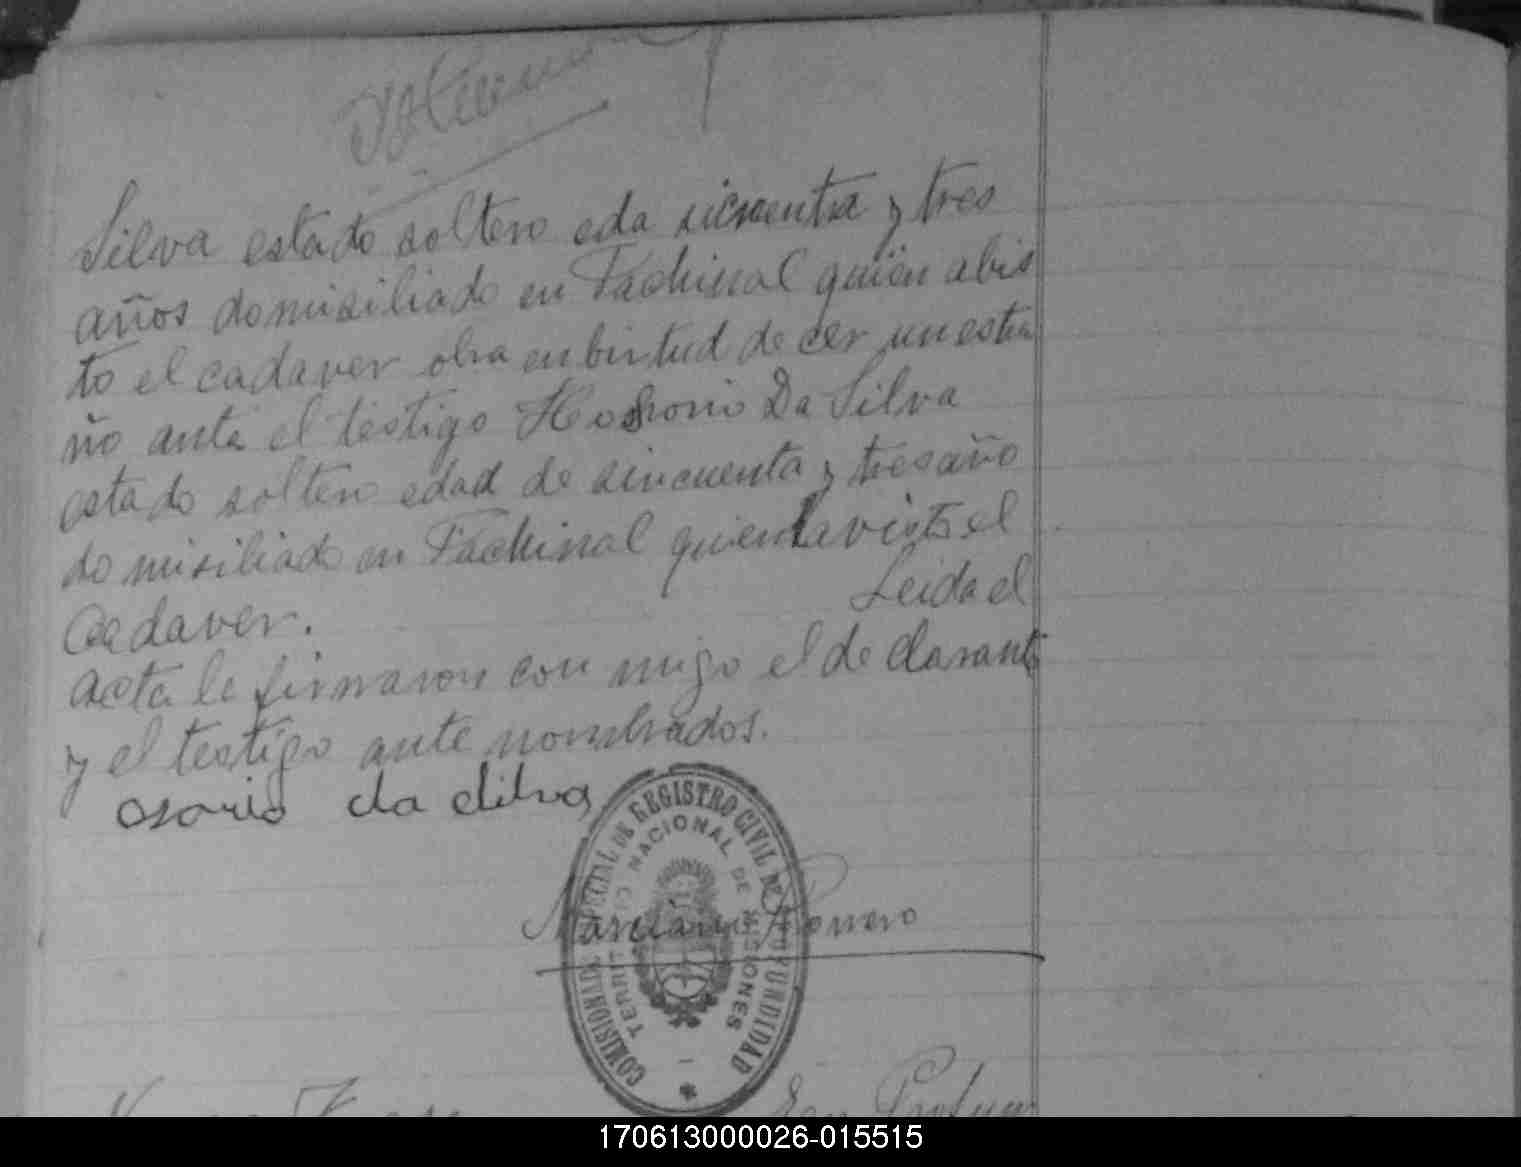 Silva estado soltero eda sicuenta y tres
años domisiliado en Fachinal quien abis
to el cadaver obra enbirtud de cer un estra
ño ante el testigo Hosorio Da Silva
estado soltero edad de sincuenta y tres año
domisiliado en Fachinal quien a visto el
Cadaver. Leida el
acta le firmaron con migo el declarante
y el testigo ante nombrados.
osorio da silva
COMISIONADO ESPECIAL DE REGISTRO CIVIL DE PROFUNDIDAD
TERRITORIO NACIONAL DE MISIONES
Marciano Romero
En Profun
170613000026-015515